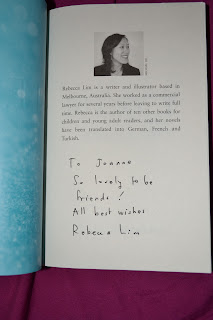 Rebecca Lim is a writer and illustrator based in
Melbourne, Australia. She worked as a commercial
lawyer for several years before leaving to write full
time. Rebecca is the author of ten other books for
children and young adult readers, and her novels
have been translated into German, French and
Turkish.
To Joanne
So lovely to be
friends!
All best wishes
Rebecca Lim